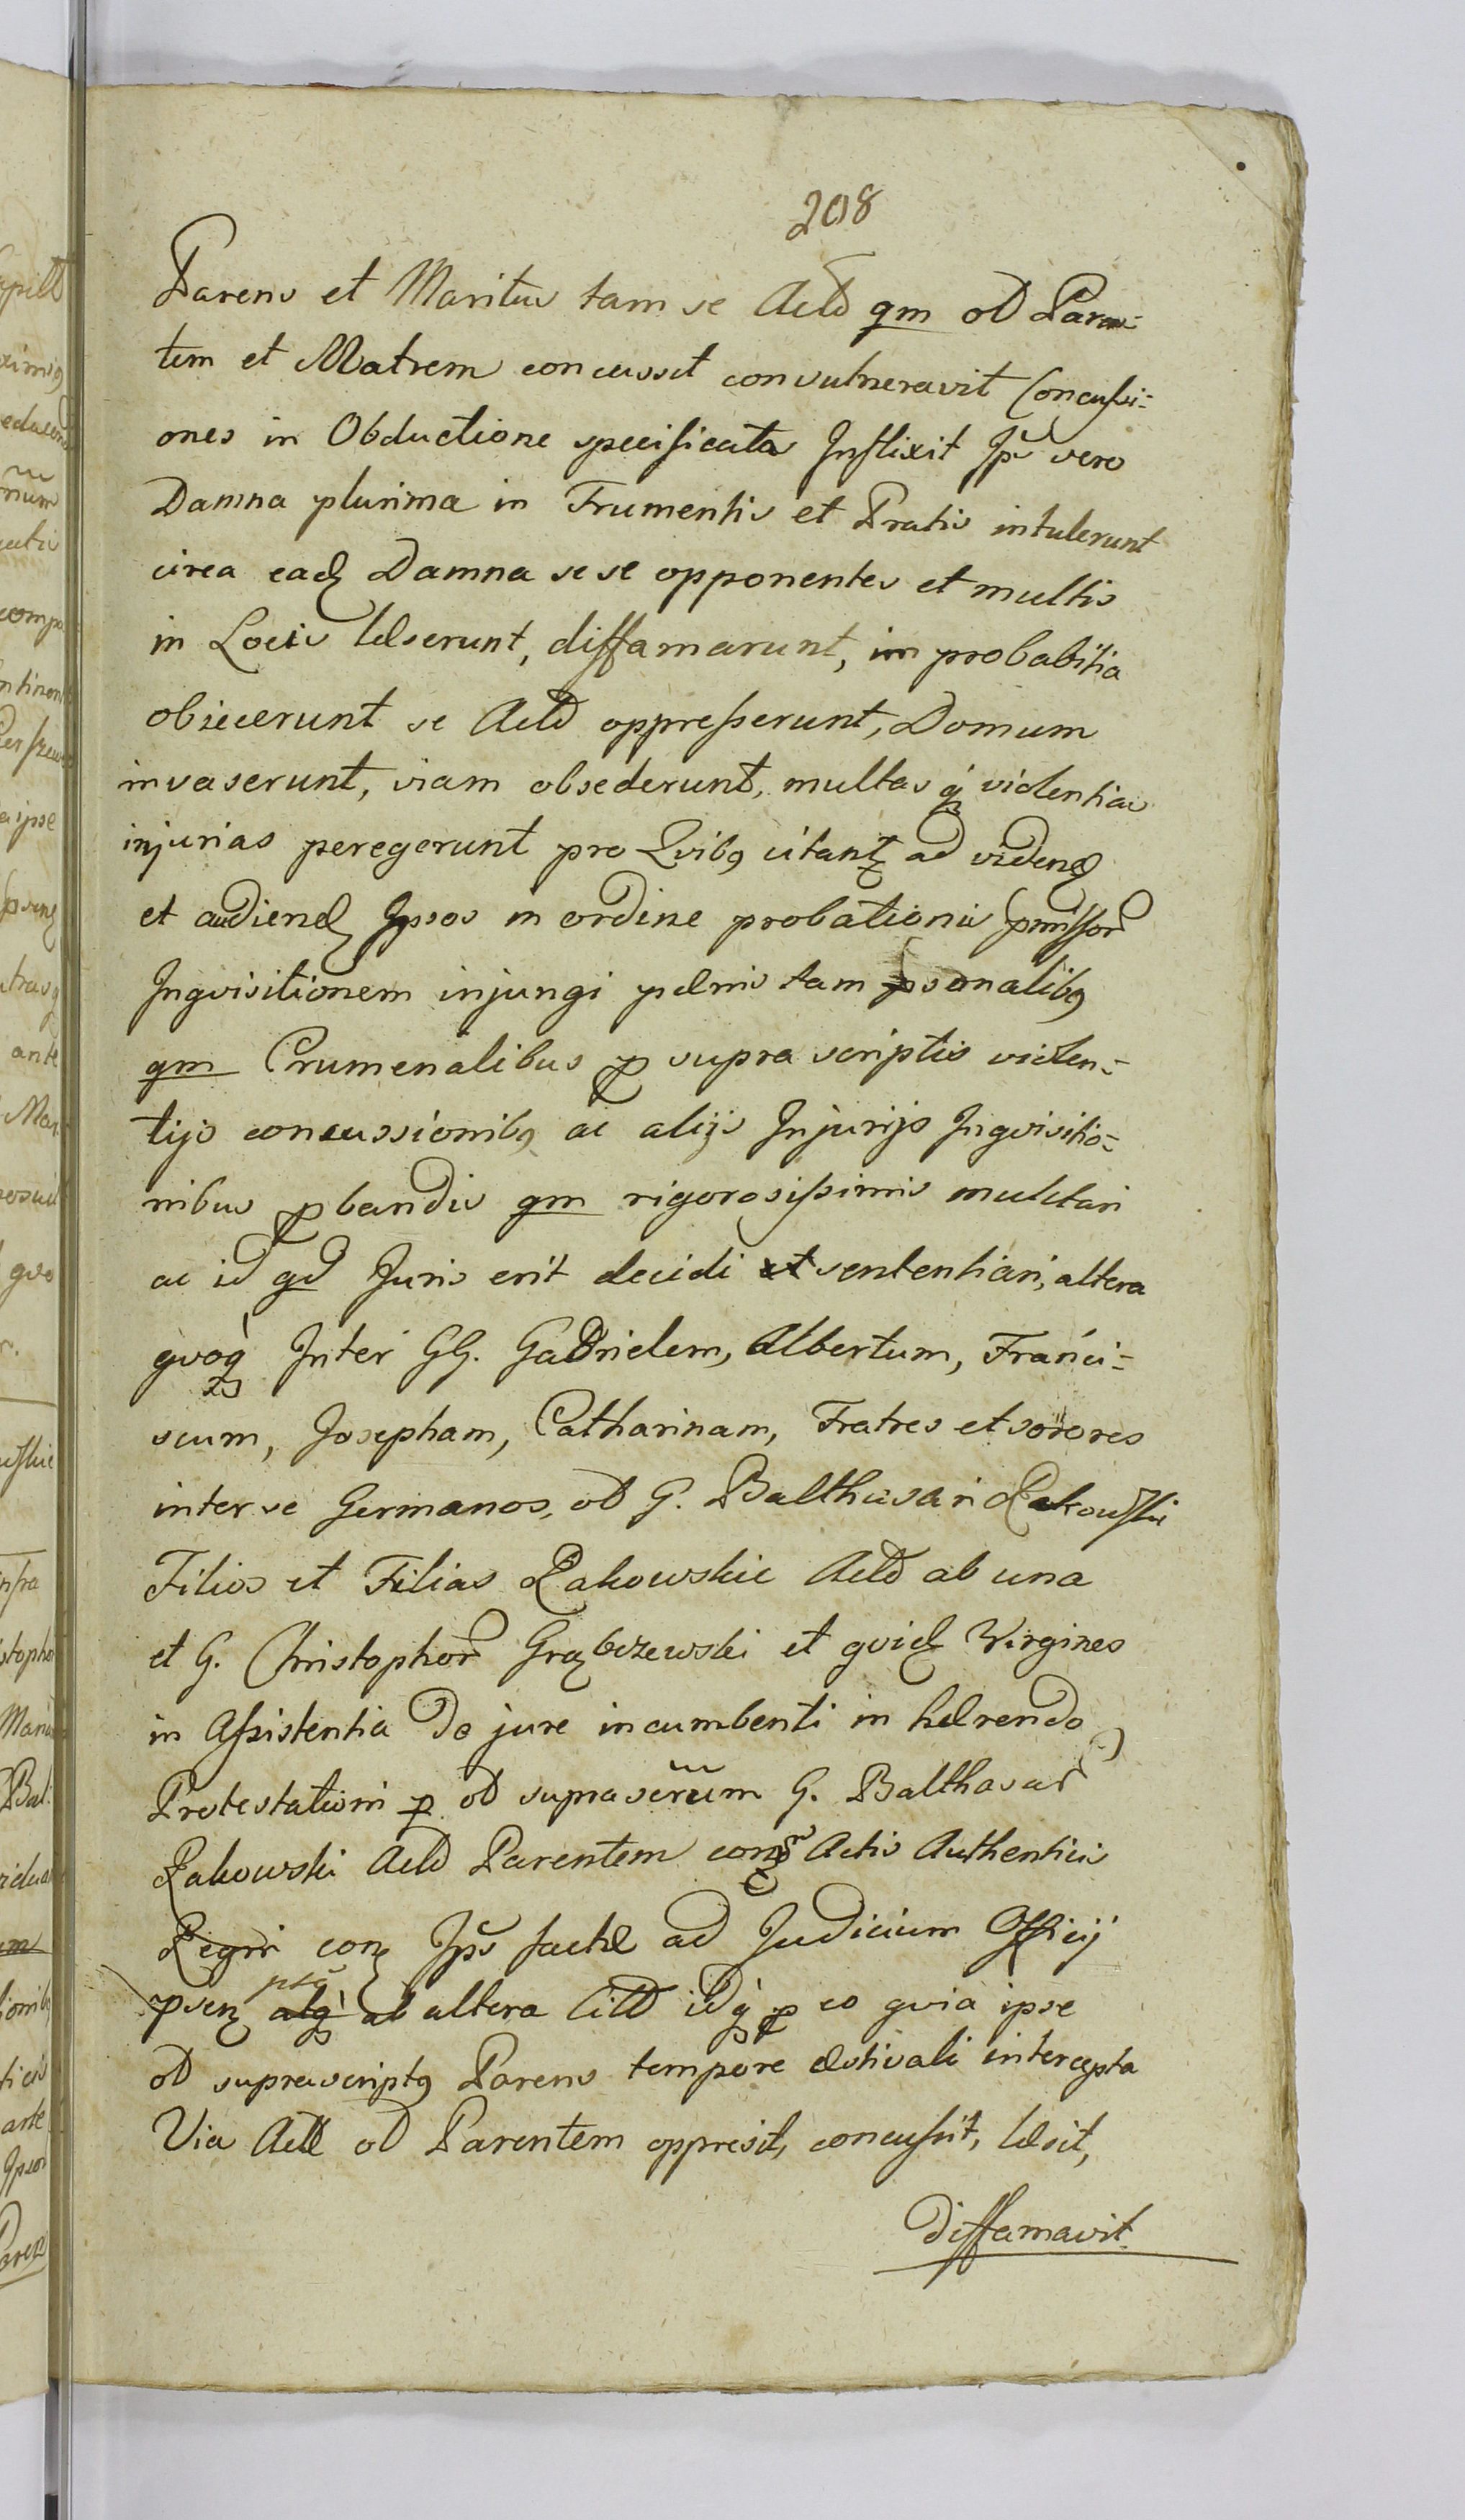 208
Parens et Maritus tam se Actd qm od Paren-
tem et Matrem concussit convulneravit Concussi-
ones in Obductione specificatas Inflixit Ips vero
Damna plurima in Frumentis et Pratis intulerunt
circa ead Damna sese opponentes et multis
in Locis læserunt, diffamarunt, improbabitia
obiecerunt se Actd oppresserunt, Domum
invaserunt, viam obsederunt, multas q violentias
injurias peregerunt pro Qvibq citant ad vidend
et audiend Ipsos in ordine probationis pmissor
Inqvisitionem injungi pænis tam psonalibq
qm Crumenalibus p supra scriptis violen-
tijs concussionibq ac alijs Injurijs Inqvisitio-
nibus pbandis qm rigorosissimis mulctari
ac id qd Juris erit decidi et sententiari, altera
qvoq Inter GG. Gabrielem, Albertum, Franci-
scum, Josepham, Catharinam, Fratres et sorores
inter se Germanos, od G. Balthasari Rakowskie
Filios et Filias Rakowskie Actd ab una
et G. Christophor Grąbczewski et qvid Virgines
in Assistentia de jure incumbenti in hærendo
Protestationi p od suprascrum G. Balthasar
Rakowski Actd Parentem con Actis Authenticis
Regni con Ips factæ ad Judicium Officij
psen atq ab altera Citd idq p eo qvia ipse
od suprascriptq Parens tempore æstivali intercepta
Via Actd od Parentem oppresit, concussit, læsit,
diffamavit